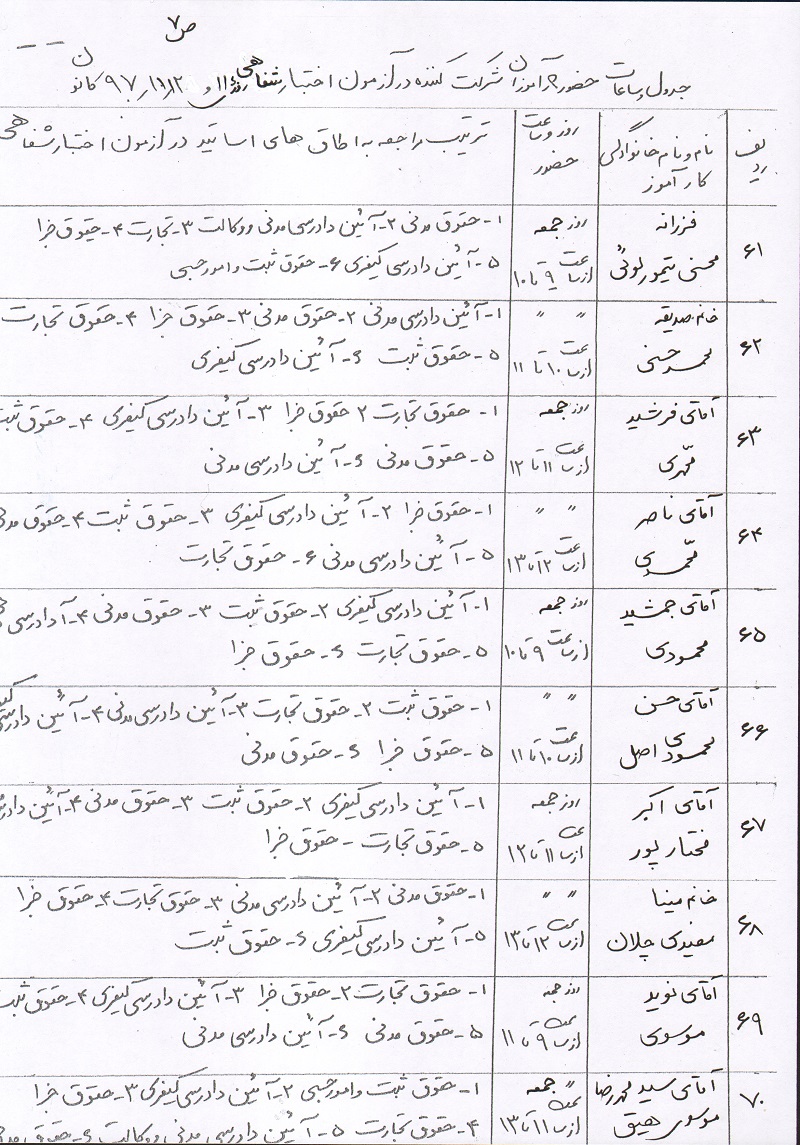 ص ۷
جدول و ساعات حضور کارآموزان شرکت کننده در آزمون اختبار شفاهی روزهای ۱۱ و ۹۷/۱۰/۱۲ کانون
ردیف
نام و نام خانوادگی کارآموز
روز و ساعت حضور
ترتیب مراجعه به اطاق های اساتید در آزمون اختبار شفاهی
۶۱
فرزانه
محسنی تیمورلوئی
روز جمعه
از ساعت ۹ تا ۱۰
۱- حقوق مدنی ۲- آئین دادرسی مدنی و وکالت ۳- تجارت ۴- حقوق جزا
۵- آئین دادرسی کیفری ۶- حقوق ثبت و امور حسبی
۶۲
خانم صدیقه
محمد حسنی
" "
از ساعت ۱۰ تا ۱۱
۱- آئین دادرسی مدنی ۲- حقوق مدنی ۳- حقوق جزا ۴- حقوق تجارت
۵- حقوق ثبت ۶- آئین دادرسی کیفری
۶۳
آقای فرشید
محمدی
روز جمعه
از ساعت ۱۱ تا ۱۲
۱- حقوق تجارت ۲ حقوق جزا ۳- آئین دادرسی کیفری ۴- حقوق ثبت
۵- حقوق مدنی ۶- آئین دادرسی مدنی
۶۴
آقای ناصر
محمدی
" "
از ساعت ۱۲ تا ۱۳
۱- حقوق جزا ۲- آئین دادرسی کیفری ۳- حقوق ثبت ۴- حقوق مدنی
۵- آئین دادرسی مدنی ۶- حقوق تجارت
۶۵
آقای جمشید
محمودی
روز جمعه
از ساعت ۹ تا ۱۰
۱- آئین دادرسی کیفری ۲- حقوق ثبت ۳- حقوق مدنی ۴- آ دادرسی
۵- حقوق تجارت ۶- حقوق جزا
۶۶
آقای حسن
محمودی اصل
" "
از ساعت ۱۰ تا ۱۱
۱- حقوق ثبت ۲- حقوق تجارت ۳- آئین دادرسی مدنی ۴- آئین دادرسی کیفری
۵- حقوق جزا ۶- حقوق مدنی
۶۷
آقای اکبر
مختار پور
روز جمعه
از ساعت ۱۱ تا ۱۲
۱- آئین دادرسی کیفری ۲- حقوق ثبت ۳- حقوق مدنی ۴- آئین
۵- حقوق تجارت - حقوق جزا
۶۸
خانم مینا
مفیدی چلان
" "
از ساعت ۱۲ تا ۱۳
۱- حقوق مدنی ۲- آئین دادرسی مدنی ۳- حقوق تجارت ۴- حقوق جزا
۵- آئین دادرسی کیفری ۶- حقوق ثبت
۶۹
آقای نوید
موسوی
روز جمعه
از ساعت ۹ تا ۱۱
۱- حقوق تجارت ۲- حقوق جزا ۳- آئین دادرسی کیفری ۴- حقوق ثبت
۵- حقوق مدنی ۶- آئین دادرسی مدنی
۷۰
آقای سید محمدرضا
موسوی هیق
" جمعه
از ساعت ۱۱ تا ۱۳
۱- حقوق ثبت و امور حسبی ۲- آئین دادرسی کیفری ۳- حقوق جزا
۴- حقوق تجارت ۵- آئین دادرسی مدنی و وکالت ۶- حقوق